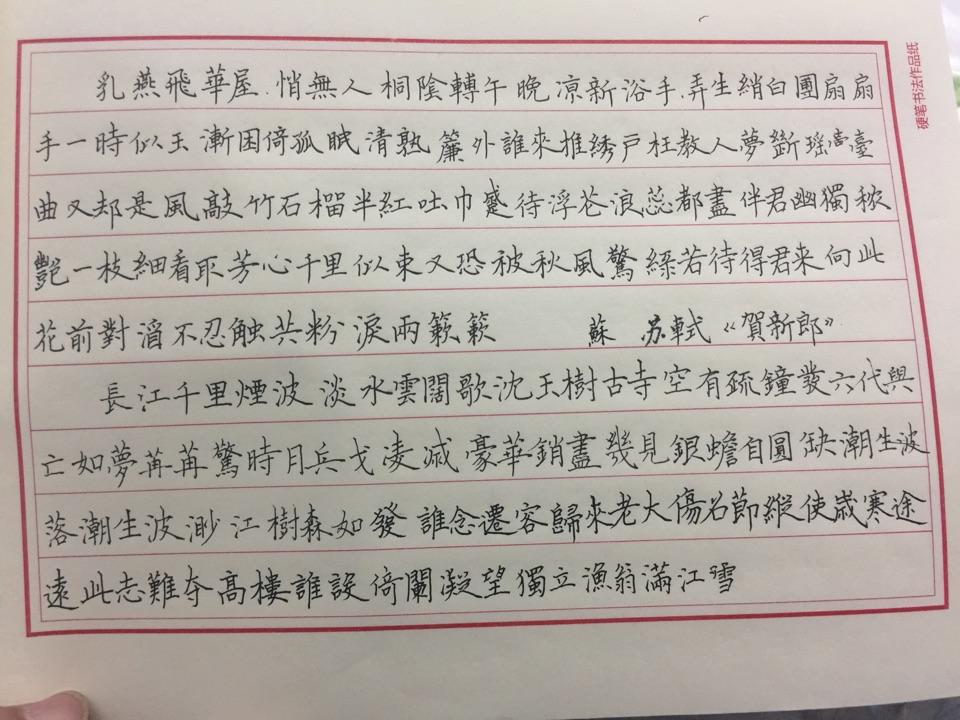 乳燕飛華屋.悄無人桐陰轉午晚凉新浴手.弄生綃白團扇扇
手一時似玉漸困倚孤眠清熟簾外誰來推綉戶枉教人夢斷瑶臺
曲又却是風敲竹石榴半紅吐巾蹙待浮花浪蕊都盡伴君幽獨秾
艷一枝細看取芳心千里似束又恐被秋風驚綠若待得君来向此
花前對酒不忍触共粉淚兩簌簌 蘇 苏軾《賀新郎》
長江千里煙波淡水雲闊歌沈玉樹古寺空有疏鐘發六代興
亡如夢苒苒驚時月兵戈凌滅豪華銷盡幾見銀蟾自圓缺潮生波
落潮生波渺江樹森如發誰念遷客歸來老大傷名節縱使歲寒途
遠此志難夺高樓誰設倚闌凝望獨立漁翁滿江雪
硬笔书法作品纸